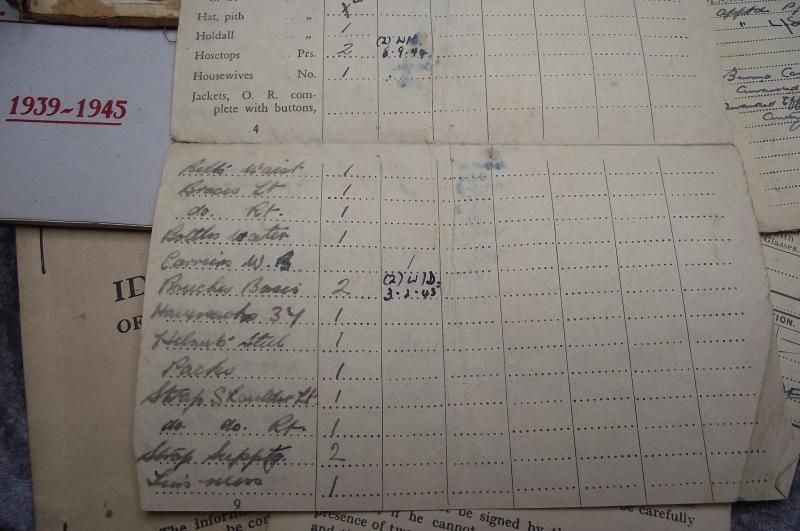 Hat, pith „
Holdall „ 1
Hosetops Prs. 2 (2) W/D. 8.9.44
Housewives No. 1
Jackets, O. R. com-
plete with buttons,
4
1939-1945
Belts waist 1
Braces Lt 1
do. Rt. 1
Bottles water 1
Carriers W.B 1
Pouches Basic 2 (2) W/D.
Haversacks 37 1
Helmets Steel 1
Packs 1
Strap Shoulder Lt. 1
do do. Rt. 1
Strap Supptg. 2
Tins mess 1
9
ID
OF
Burma
awarded
Glasses.
ION.
The inform
be cor
presence of tw
be signed by th
if he cannot
carefully